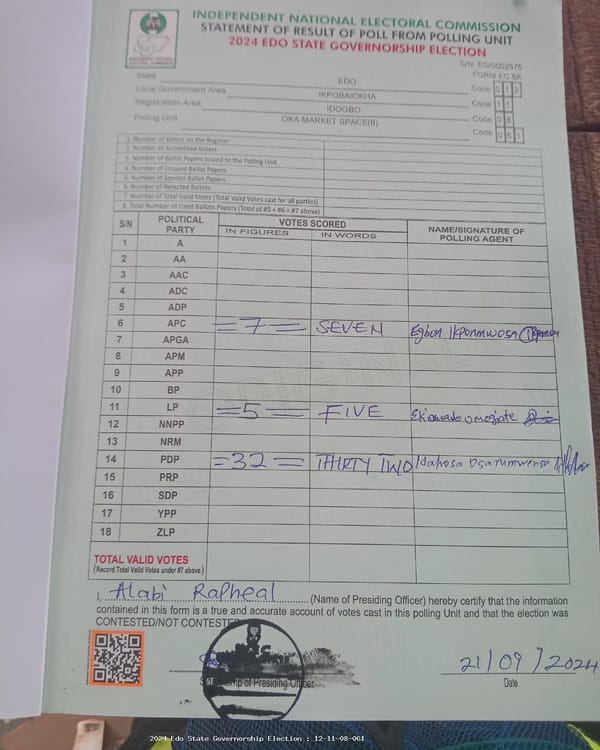 INDEPENDENT NATIONAL ELECTORAL COMMISSION
STATEMENT OF RESULT OF POLL FROM POLLING UNIT
2024 EDO STATE GOVERNORSHIP ELECTION
S/N: EG/0002576
FORM EC 8A
State EDO Code 0 1 2
Local Government Area IKPOBA/OKHA Code 1 1
Registration Area IDOGBO Code 0 8
Polling Unit OKA MARKET SPACE(II) Code 0 6 1
1. Number of Voters on the Register
2. Number of Accredited Voters
3. Number of Ballot Papers Issued to the Polling Unit
4. Number of Unused Ballot Papers
5. Number of Spoiled Ballot Papers
6. Number of Rejected Ballots
7. Number of Total Valid Votes (Total Valid Votes cast for all parties)
8. Total Number of Used Ballots Papers (Total of #5 + #6 + #7 above)
S/N POLITICAL PARTY VOTES SCORED NAME/SIGNATURE OF POLLING AGENT
IN FIGURES IN WORDS
1 A
2 AA
3 AAC
4 ADC
5 ADP
6 APC =7= SEVEN Egbon Ikponmwosa
7 APGA
8 APM
9 APP
10 BP
11 LP =5= FIVE
12 NNPP
13 NRM
14 PDP =32= THIRTY TWO Idahosa Osarumwense
15 PRP
16 SDP
17 YPP
18 ZLP
ORIGINAL
TOTAL VALID VOTES
(Record Total Valid Votes under #7 above)
I, Alabi Rapheal (Name of Presiding Officer) hereby certify that the information
contained in this form is a true and accurate account of votes cast in this polling Unit and that the election was
CONTESTED/NOT CONTESTED
21/09/2024
of Presiding Officer Date
2024 Edo State Governorship Election : 12-11-08-061